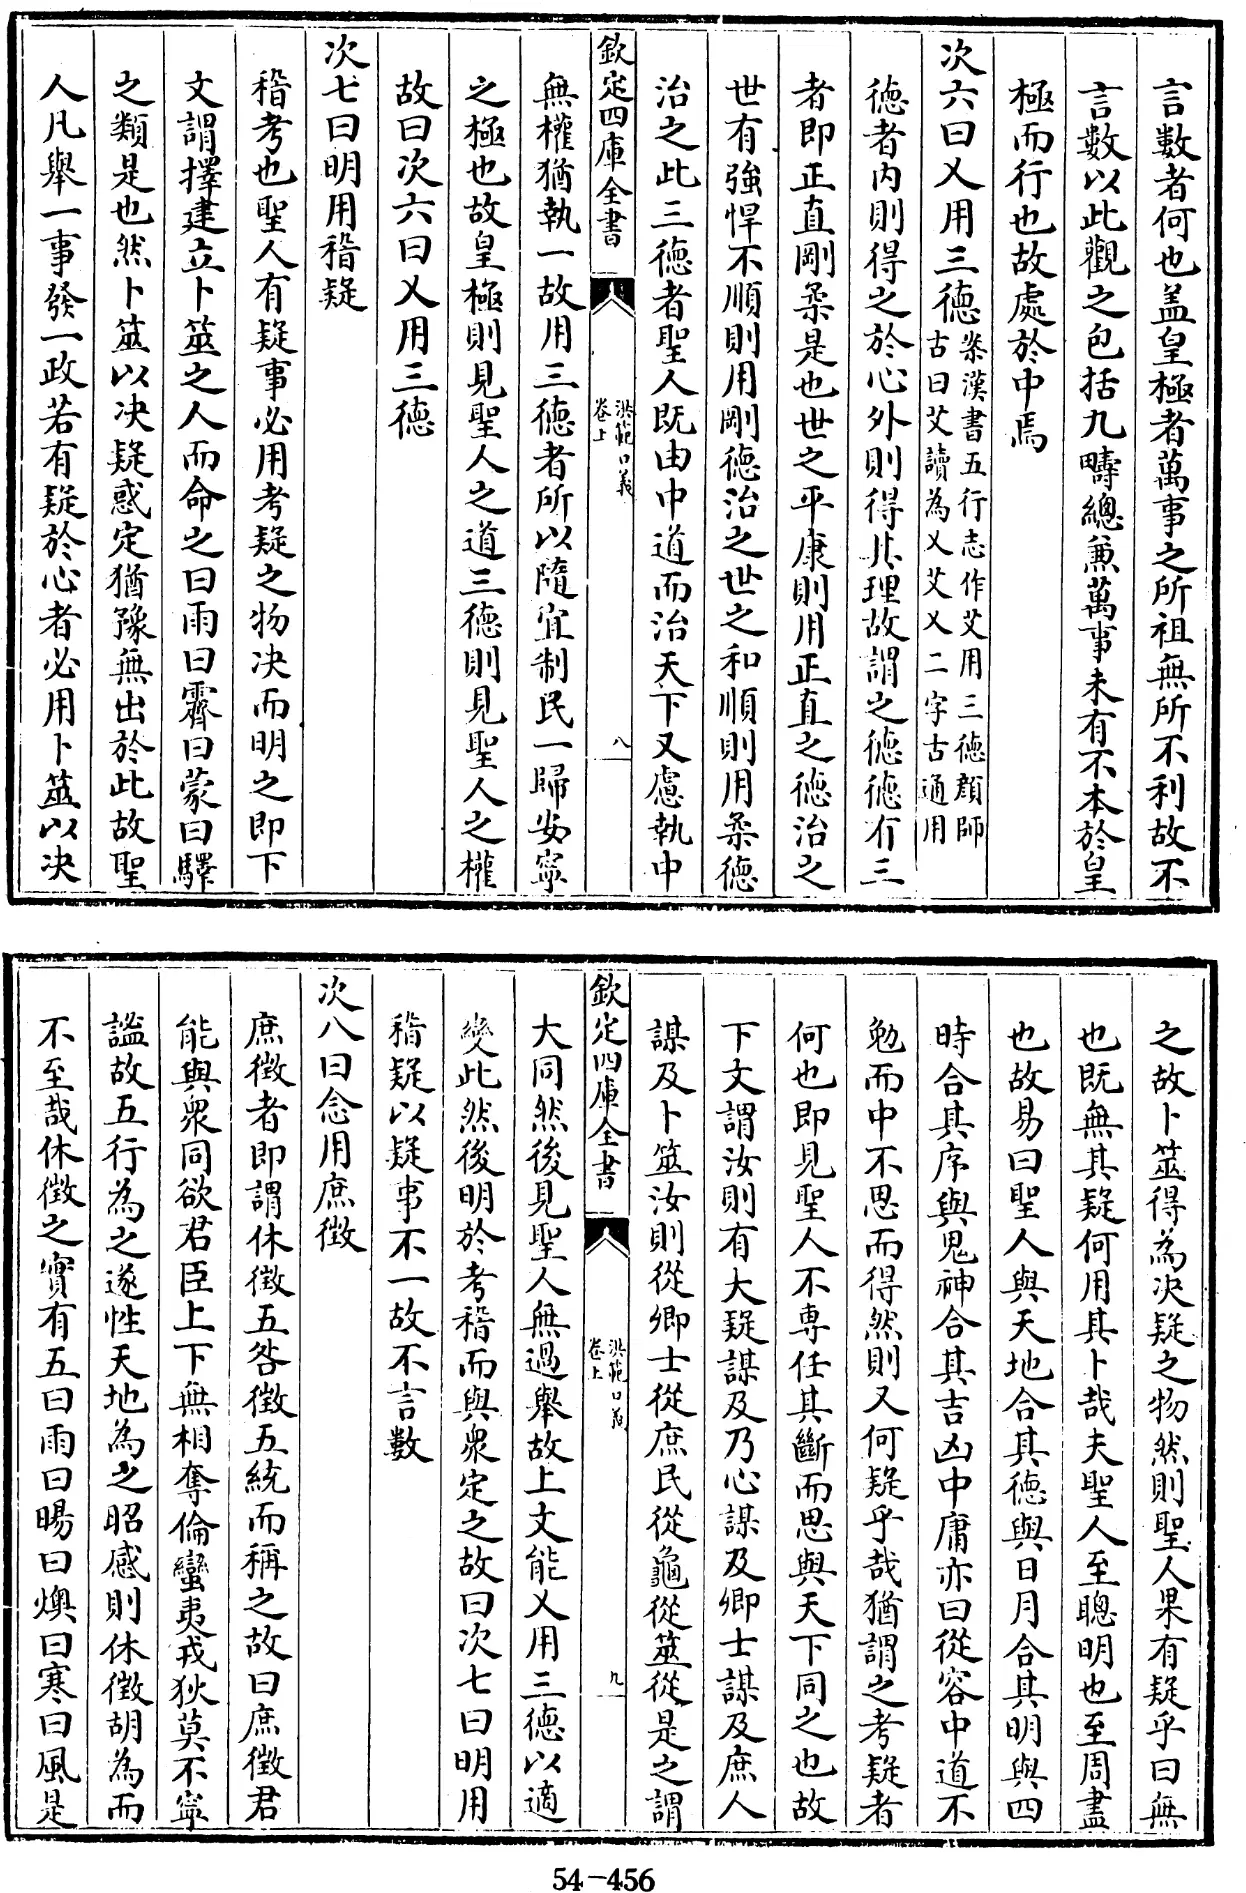 言數者何也盖皇極者萬事之所祖無所不利故不
言數以此觀之包括九疇總兼萬事未有不本於皇
極而行也故處於中焉
次六曰乂用三德案漢書五行志作艾用三德顔師
古曰艾讀為乂艾乂二字古通用
德者内則得之於心外則得其理故謂之德德有三
者即正直剛柔是也世之平康則用正直之德治之
世有強悍不順則用剛德治之世之和順則用柔德
治之此三德者聖人既由中道而治天下又慮執中
欽定四庫全書
洪範口義
卷上
八
無權猶執一故用三德者所以隨宜制民一歸安寧
之極也故皇極則見聖人之道三德則見聖人之權
故曰次六曰乂用三德
次七曰明用稽疑
稽考也聖人有疑事必用考疑之物决而明之即下
文謂擇建立卜筮之人而命之曰雨曰霽曰蒙曰驛
之類是也然卜筮以决疑惑定猶豫無出於此故聖
人凡舉一事發一政若有疑於心者必用卜筮以决
之故卜筮得為决疑之物然則聖人果有疑乎曰無
也既無其疑何用其卜哉夫聖人至聰明也至周盡
也故易曰聖人與天地合其德與日月合其明與四
時合其序與鬼神合其吉凶中庸亦曰從容中道不
勉而中不思而得然則又何疑乎哉猶謂之考疑者
何也即見聖人不専任其斷而思與天下同之也故
下文謂汝則有大疑謀及乃心謀及卿士謀及庶人
謀及卜筮汝則從卿士從庶民從龜從筮從是之謂
欽定四庫全書
洪範口義
卷上
九
大同然後見聖人無過舉故上文能乂用三德以適
變此然後明於考稽而與衆定之故曰次七曰明用
稽疑以疑事不一故不言數
次八曰念用庶徴
庶徴者即謂休徴五咎徴五統而稱之故曰庶徴君
能與衆同欲君臣上下無相奪倫蠻夷戎狄莫不寧
謐故五行為之遂性天地為之昭感則休徴胡為而
不至哉休徴之實有五曰雨曰暘曰燠曰寒曰風是
54-456